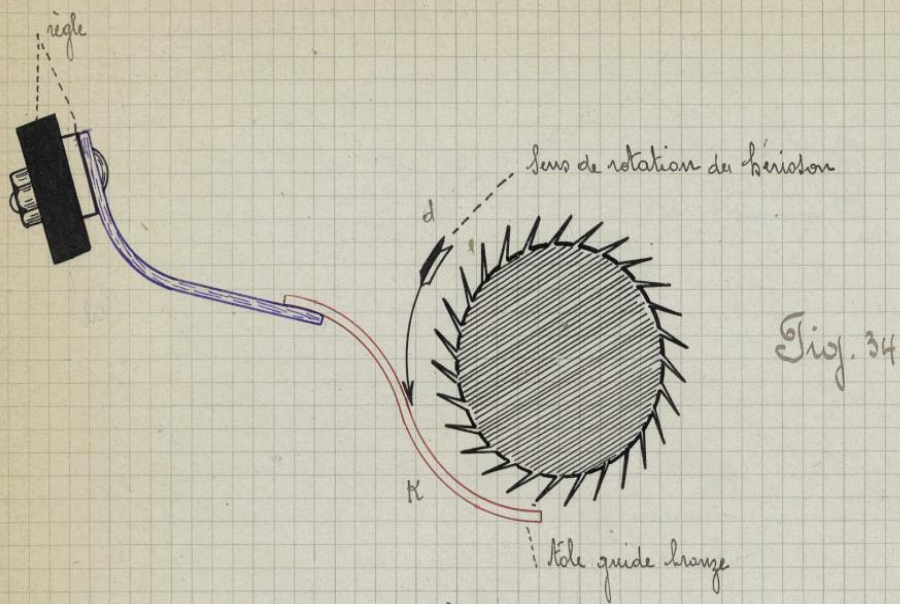 règle
Sens de rotation du hérisson
d
Fig. 34
K
tôle guide bronze